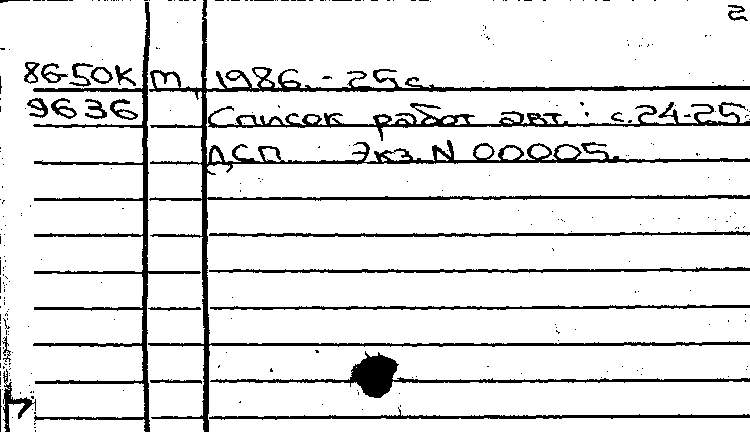 2
86-50К т, 1986. - 25 с.
9636 Список работ авт. : с. 24-25.
ДСП Экз. N 00005.